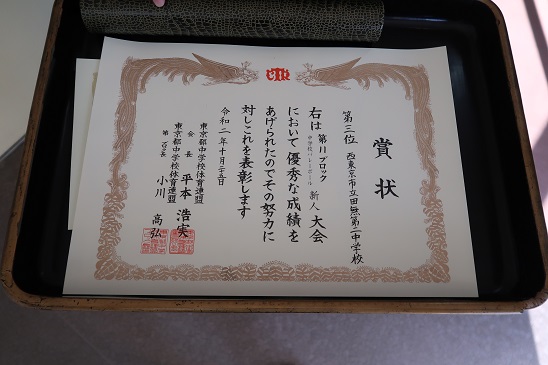 賞状
第三位 西東京市立田無第二中学校
右は 第11ブロック 中学校バレーボール 新人 大会
において優秀な成績を
あげられたのでその努力に
対しこれを表彰します
令和二年十月二十五日
東京都中学校体育連盟
会長 平本 浩実
東京都中学校体育連盟
小川 高弘